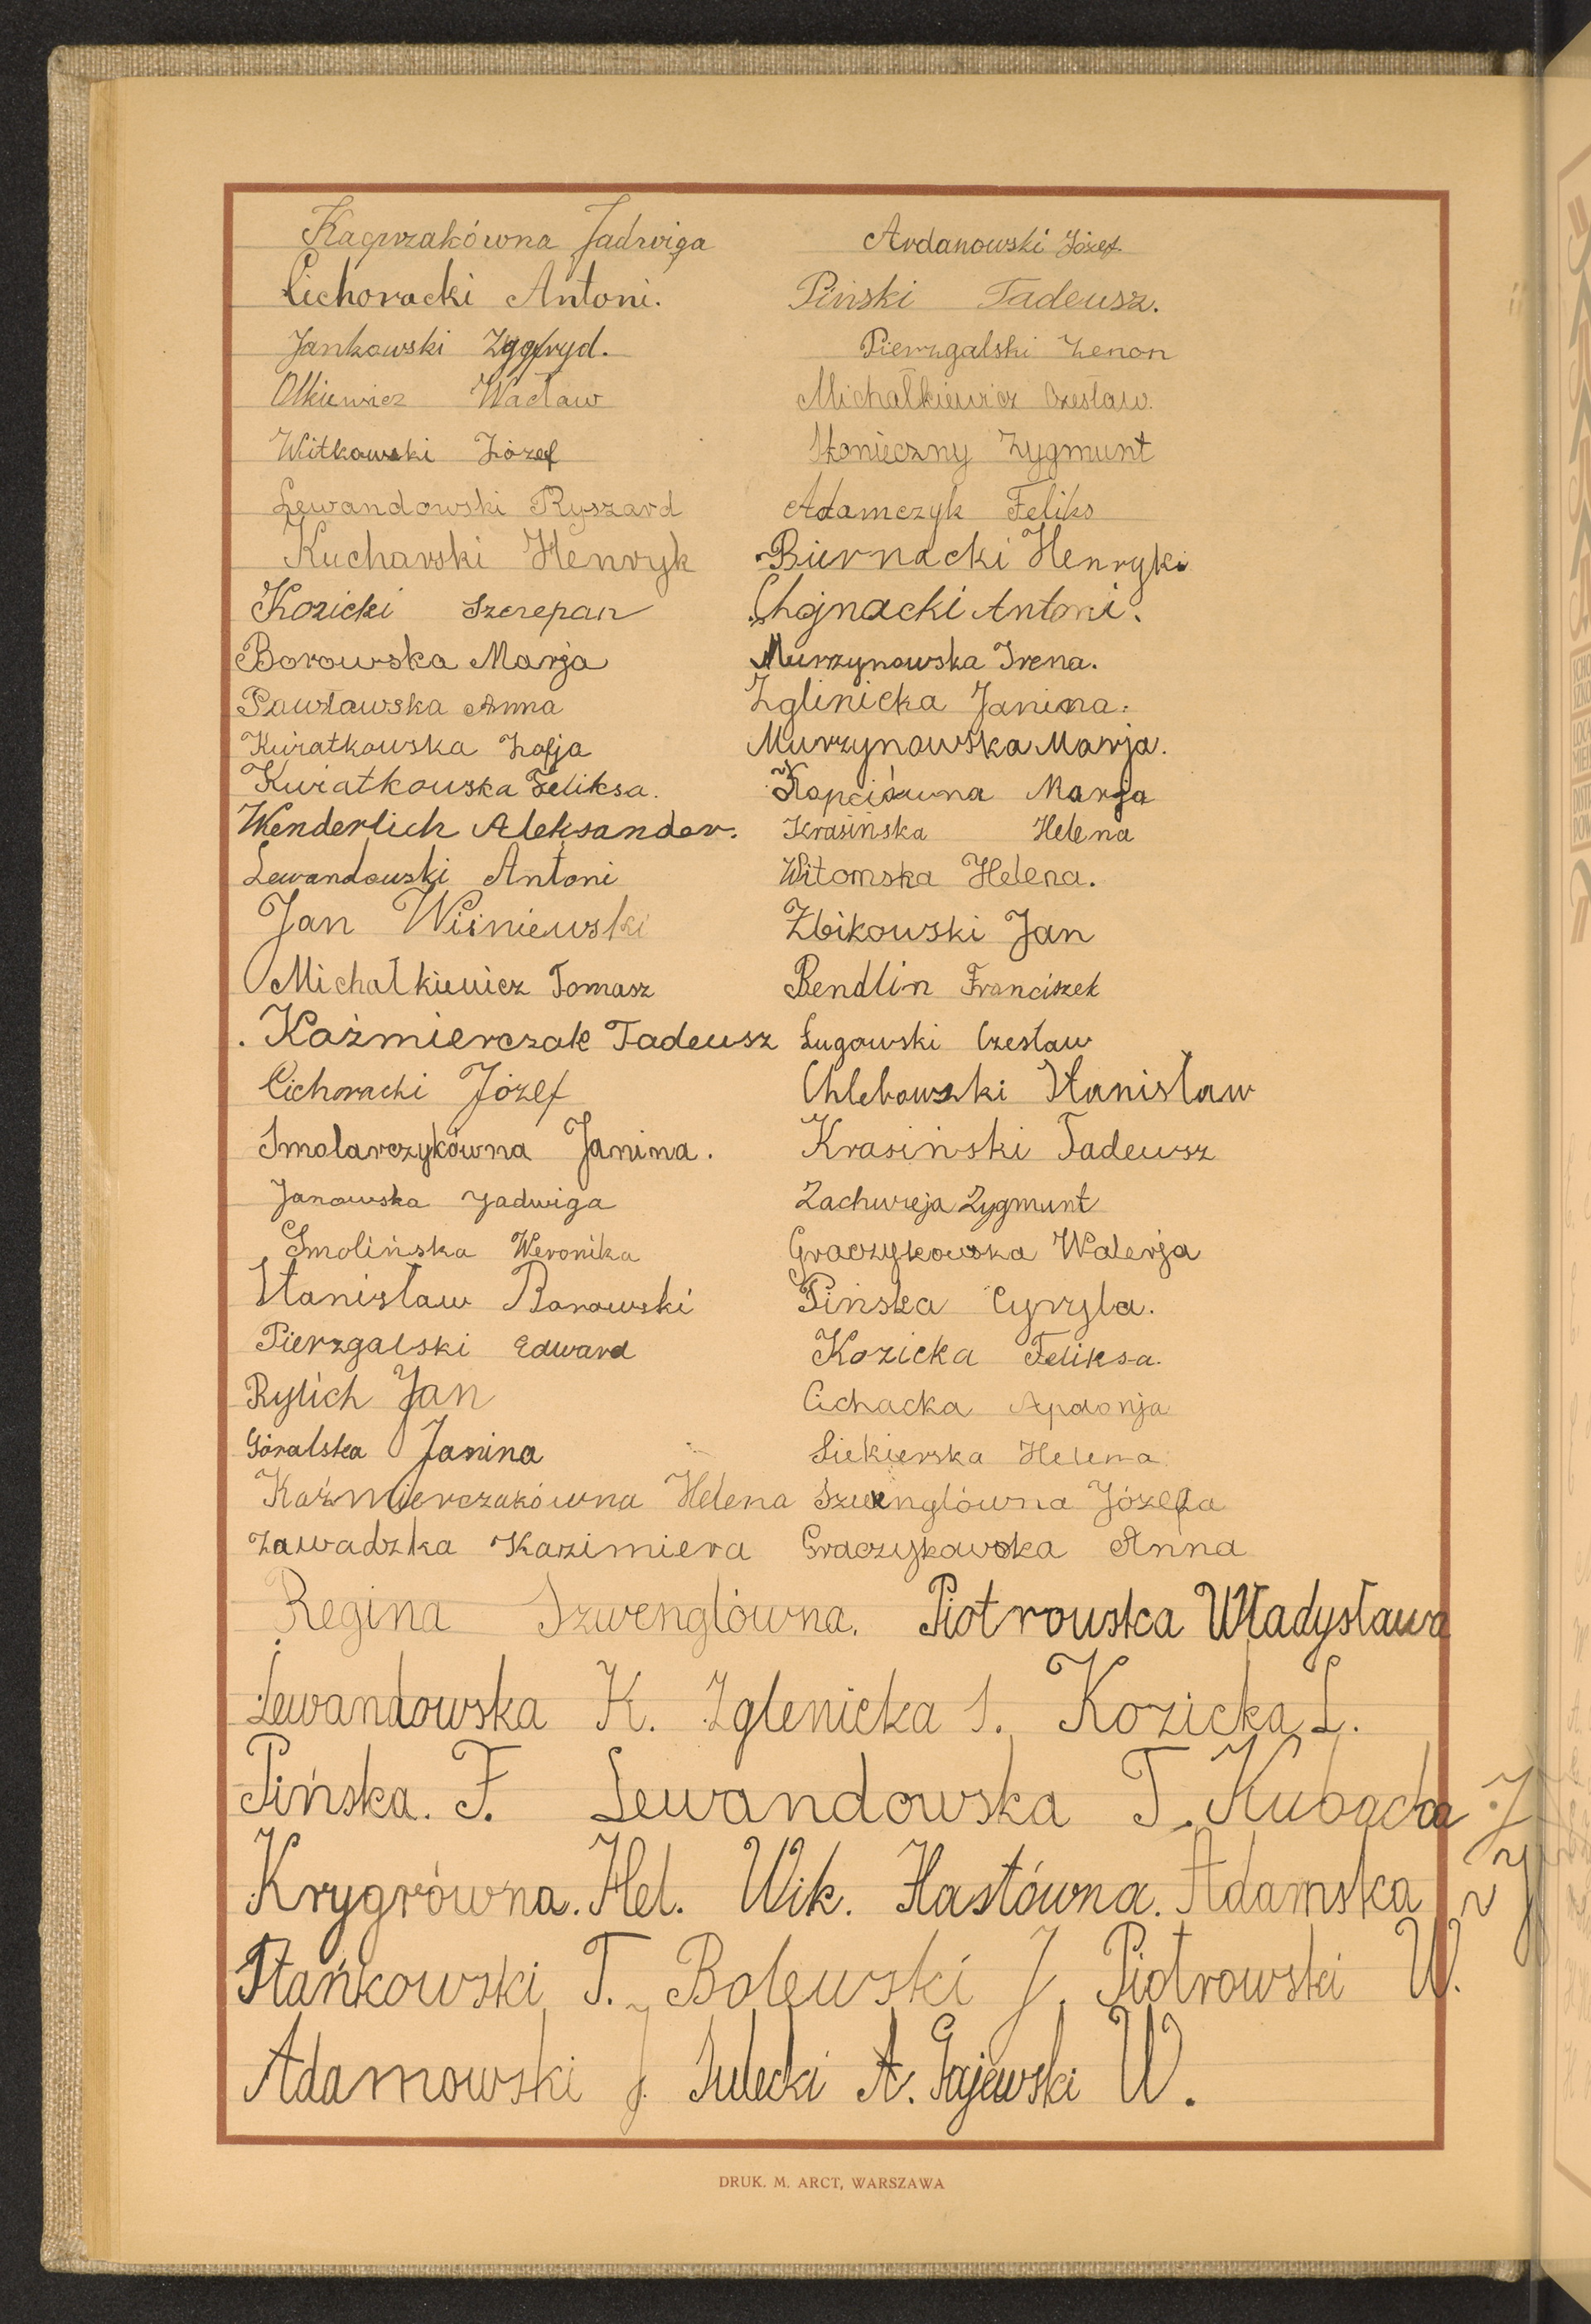 Kacprzakówna Jadwiga
Cichoracki Antoni.
Jankowski Zygfryd.
Olkiewicz Wacław
Witkowski Józef
Lewandowski Ryszard
Kucharski Henryk
Kozicki Szczepan
Borowska Marja
Pawławska Anna
Kwiatkowska Zofja
Kwiatkowska Feliksa.
Wenderlich Aleksander.
Lewandowski Antoni
Jan Wiśniewski
Michałkiewicz Tomasz
Kaźmierczak Tadeusz
Cichoracki Józef
Smolarczykówna Janina.
Janowska Jadwiga
Smolińska Weronika
Stanisław Borowski
Pierzgalski Edward
Rylich Jan
Góralska Janina
Kaźmierczakówna Helena
Zawadzka Kazimiera
Ardanowski Józef
Piński Tadeusz.
Pierzgalski Zenon
Michałkiewicz Czesław.
Słonieczny Zygmunt
Adamczyk Feliks
Biernacki Henryk
Chojnacki Antoni.
Murzynowska Irena.
Zglinicka Janina.
Murzynowska Marja.
Kopciówna Marja
Krasińska Helena
Witomska Helena.
Żbikowski Jan
Bendlin Franciszek
Ługowski Czesław
Chlebowski Stanisław
Krasiński Tadeusz
Zachwieja Zygmunt
Graczykowska Walerja
Pińska Cyryla.
Kozicka Feliksa.
Cichacka Apolonja
Siekierska Helena
Szwenglówna Józefa
Graczykowska Anna
Regina Szwenglówna. Piotrowska Władysława
Lewandowska K. Zglenicka S. Kozicka L.
Pińska. F. Lewandowska T. Kubacka J
Krygrówna. Hel. Wik. Hastówna. Adamska J
Stańkowski T. Bolewski J. Piotrowski W.
Adamowski J. Sulecki A. Gajewski W.
DRUK. M. ARCT, WARSZAWA